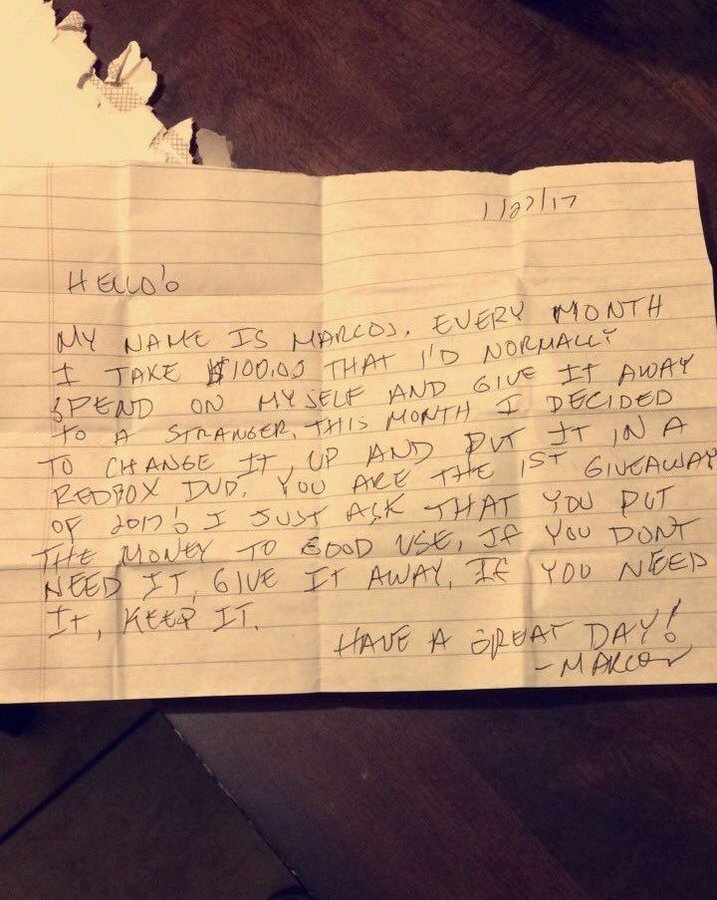 1/27/17
HELLO!
MY NAME IS MARCOS. EVERY MONTH
I TAKE $100.00 THAT I'D NORMALLY
SPEND ON MYSELF AND GIVE IT AWAY
TO A STRANGER. THIS MONTH I DECIDED
TO CHANGE IT UP AND PUT IT IN A
REDBOX DVD. YOU ARE THE 1ST GIVEAWAY
OF 2017! I JUST ASK THAT YOU PUT
THE MONEY TO GOOD USE, IF YOU DONT
NEED IT, GIVE IT AWAY, IF YOU NEED
IT, KEEP IT.
HAVE A GREAT DAY!
-MARCOS